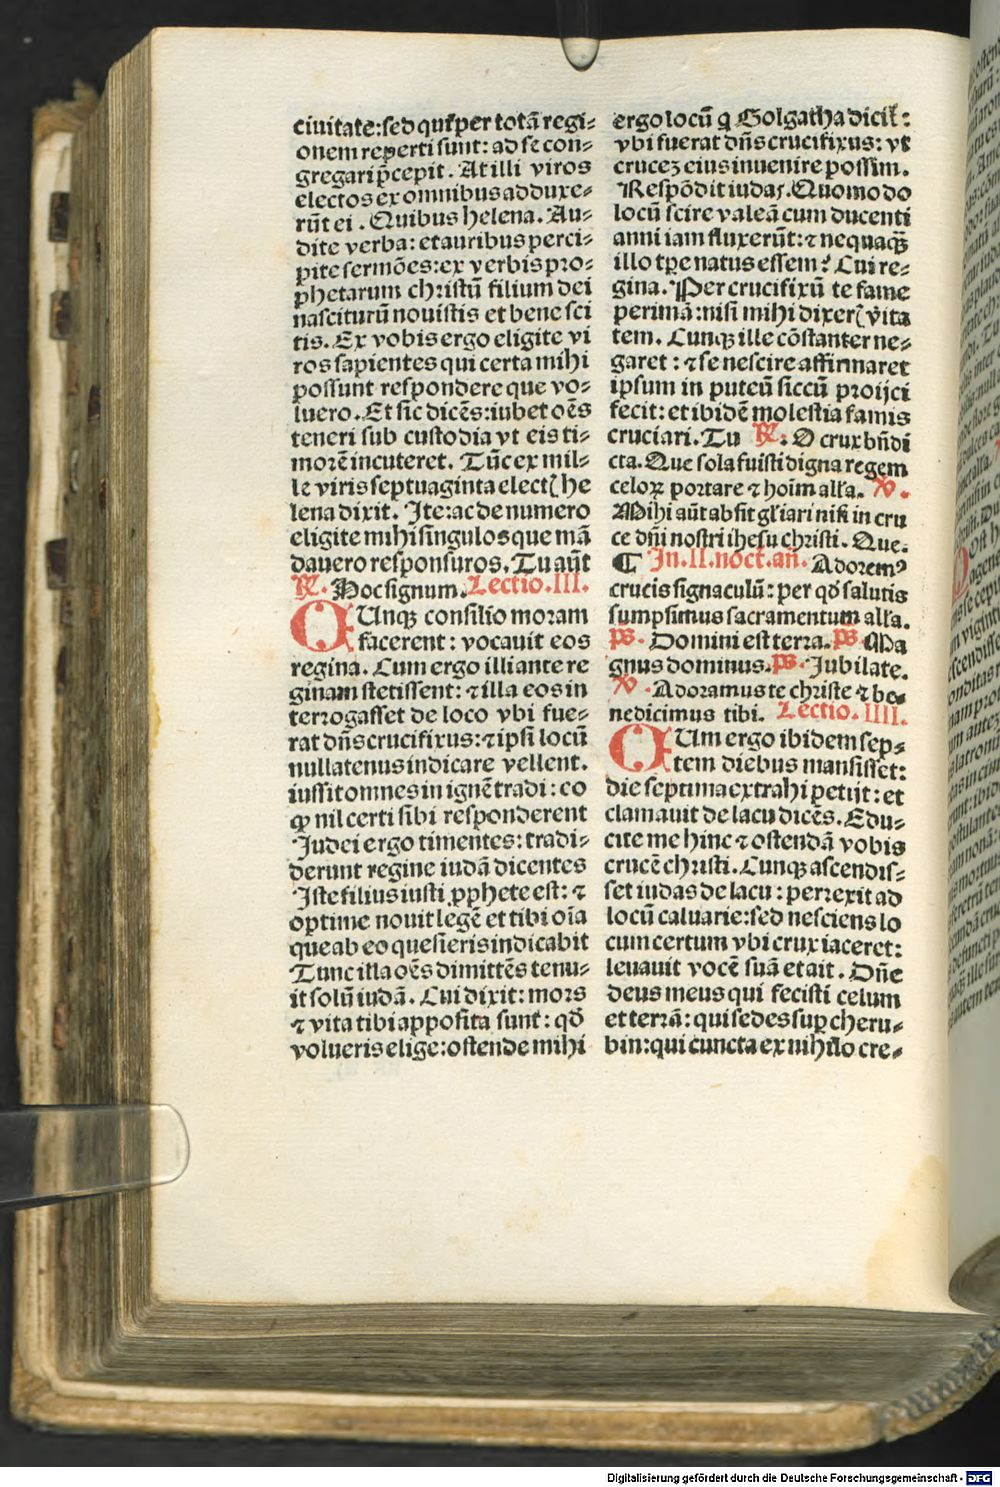 ciuitate: sed qui ꝑ per totā regi⸗
onem reperti sunt: ad se con⸗
gregari p̄cepit. At illi viros
electos ex omnibus adduxe⸗
rūt ei. Quibus helena. Au⸗
dite verba: et auribus perci⸗
pite sermōes: ex verbis pro⸗
phetarum christū filium dei
nasciturū nouistis et bene sci
tis. Ex vobis ergo eligite vi
ros sapientes qui certa mihi
possunt respondere que vo⸗
luero. Et sic dicēs: iubet oēs
teneri sub custodia vt eis ti⸗
morē incuteret. Tūc ex mil⸗
le viris septuaginta electꝭ he
lena dixit. Ite: ac de numero
eligite mihi singulos que mā
da vero responsuros. Tu aūt
℟. Hoc signum. Lectio. III.
CUnqꝫ consilio moram
facerent: vocauit eos
regina. Cum ergo illi ante re
ginam stetissent: ⁊ illa eos in
terrogasset de loco vbi fue⸗
rat dn̄s crucifixus: ⁊ ipsi locū
nullatenus indicare vellent.
iussit omnes in ignē tradi: eo
ꝙ nil certi sibi responderent
Judei ergo timentes: tradi⸗
derunt regine iudā dicentes
Iste filius iusti ꝓphete est: ⁊
optime nouit legē et tibi oīa
que ab eo quesieris indicabit
Tunc illa oēs dimittēs tenu⸗
it solū iudā. Cui dixit: mors
⁊ vita tibi apposita sunt: qd̄
volueris elige: ostende mihi
ergo locū q̄ Golgatha dicit̄:
vbi fuerat dn̄s crucifixus: vt
cruceꝫ eius inuenire possim.
Respōdit iudas. Quomodo
locū scire valeā cum ducenti
anni iam fluxerūt: ⁊ nequaqꝫ̄
illo tp̄e natus essem? Cui re⸗
gina. Per crucifixū te fame
perimā: nisi mihi dixerꝭ v̄ita
tem. Cunqꝫ ille cōstanter ne⸗
garet: ⁊ se nescire affirmaret
ipsum in puteū siccū proijci
fecit: et ibidē molestia famis
cruciari. Tu ℟: O crux bn̄di
cta. Que sola fuisti digna regem
celoꝝ portare ⁊ hoīm all'a. ℣.
Mihi aūt absit gl'iari nisi in cru
ce dn̄i nostri ihesu christi. Que.
¶ In. II. noct. an̄. Adoremꝰ
crucis signaculū: per qd̄ salutis
sumpsimus sacramentum all'a.
p̄s. Domini est terra. p̄s. Ma
gnus dominus. p̄s. Jubilate.
℣. Adoramus te christe ⁊ be⸗
nedicimus tibi. Lectio. IIII.
CUm ergo ibidem sep⸗
tem diebus mansisset:
die septima extrahi petijt: et
clamauit de lacu dicēs. Edu⸗
cite me hinc ⁊ ostendā vobis
crucē christi. Cunqꝫ ascendis⸗
set iudas de lacu: perrexit ad
locū caluarie: sed nesciens lo
cum certum vbi crux iaceret:
leuauit vocē suā et ait. Dn̄e
deus meus qui fecisti celum
et terrā: qui sedes suꝑ cheru⸗
bin: qui cuncta ex nihilo cre⸗
Digitalisierung gefördert durch die Deutsche Forschungsgemeinschaft - DFG